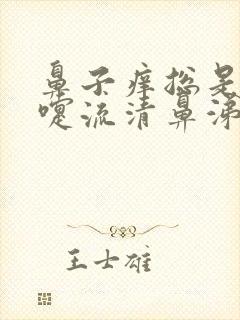 鼻子痒总是
嚏流清鼻涕
王士雄